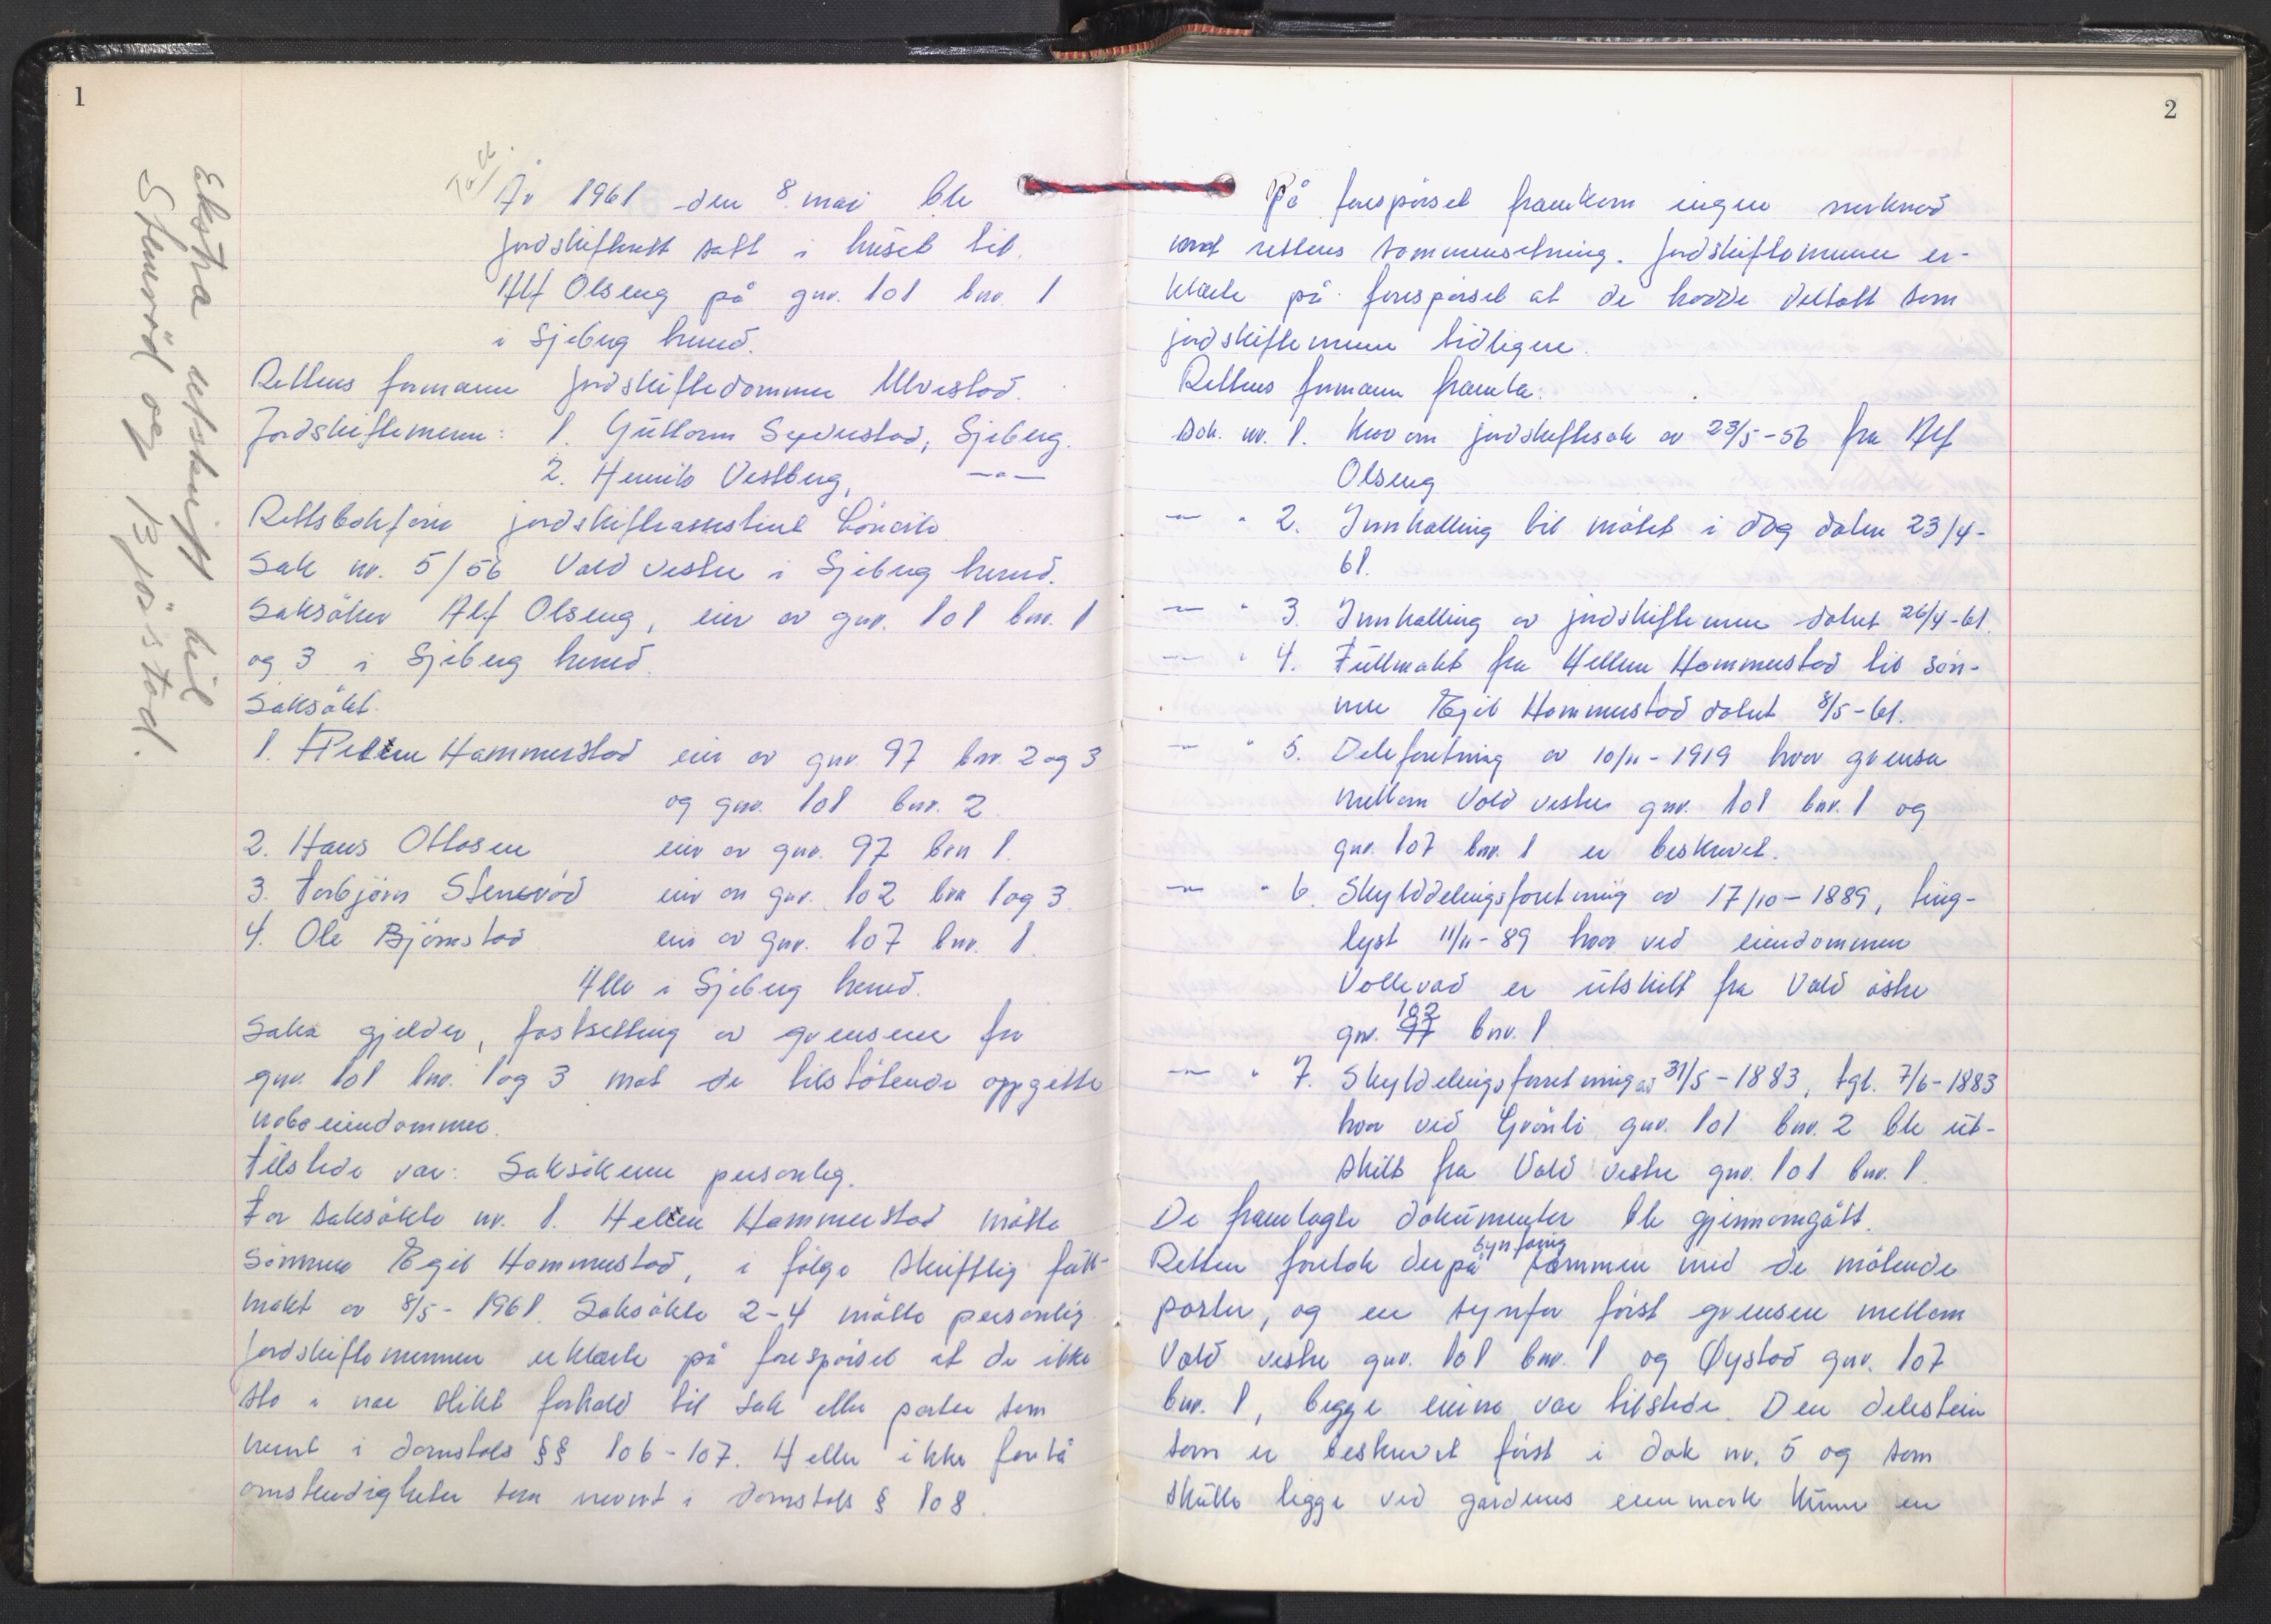 1
Ekstra utskrift til
Stensröd og Bjöstad.
År 1961 den 8. mai ble
jordskifterett satt i huset til
Alf Olseng på gnr. 101 bnr. 1
i Skjeberg herred.
Rettens formann jordskiftedommer Ulvestad.
Jordskiftemenn: 1. Guttorm Syverstad, Skjeberg.
2. Henrik Vestberg, —"—
Rettsbokfører jordskifteassistent
Sak nr. 5/56 Vold vestre i Skjeberg herred.
Saksöker Alf Olseng, eier av gnr. 101 bnr. 1
og 3 i Skjeberg herred.
Saksökt.
1. Hellen Hammerstad eier av gnr. 97 bnr. 2 og 3
og gnr. 101 bnr. 2
2. Hans Ottosen eier av gnr. 97 bnr 1.
3. Torbjörn Stensröd eier av gnr. 102 bnr 1 og 3
4. Ole Björnstad eier av gnr. 107 bnr. 1.
Alle i Skjeberg herred.
Saka gjelder, fastsetting av grensene for
gnr. 101 bnr. 1 og 3 mot de tilstötende oppgitte
naboeiendommer.
Tilstede var: Saksökeren personlig.
For saksökte nr. 1. Hellen Hammerstad mötte
sönnen Egil Hammerstad, i fölge skriftlig full-
makt av 8/5-1961. Saksökte 2-4 mötte personlig.
Jordskiftemennene erklærte på forespörsel at de ikke
sto i noe slikt forhold til sak eller parter som
nevnt i domstols §§ 106-107. Heller ikke forelå
omstendigheter som nevnt i domstols § 108.
2
På forespörsel framkom ingen merknad
mot rettens sammensetning. Jordskiftemennene er-
klærte på forespörsel at de hadde deltatt som
jordskiftemenn tidligere.
Rettens formann framla:
Dok. nr. 1. Krav om jordskiftesak av 23/5-56 fra Alf
Olseng
—"— " 2. Innkalling til mötet i dag daten 23/4-
61.
—"— " 3. Innkalling av jordskiftemenn datert 26/4-61.
—"— " 4. Fullmakt fra Hellen Hammerstad til sön-
nen Egil Hammerstad datert 8/5-61.
—"— " 5. Deleforretning av 10/11-1919 hvor grensen
mellom Vold vestre gnr. 101 bnr. 1 og
gnr. 107 bnr. 1 er beskrevet.
—"— " 6. Skylddelingsforretning av 17/10-1889, ting-
lyst 11/11-89 hvor ved eiendommen
Vollevad er utskilt fra Vold östre
gnr. 97 102 bnr. 1
—"— " 7. Skylddelingsforretning av 31/5-1883, tgl. 7/6-1883
hvor ved Grönli gnr. 101 bnr. 2 ble ut-
skilt fra Vold vestre gnr. 101 bnr. 1.
De framlagte dokumenter ble gjennomgått.
Retten foretok derpå synfaring sammen med de mötende
parter, og en synfor först grensen mellom
Vold vestre gnr. 101 bnr. 1 og Øystad gnr. 107
bnr. 1, begge eierne var tilstede. Den delestein
som er beskrevet först i dok nr. 5 og som
skulle ligge ved gårdenes enemerk kunne en